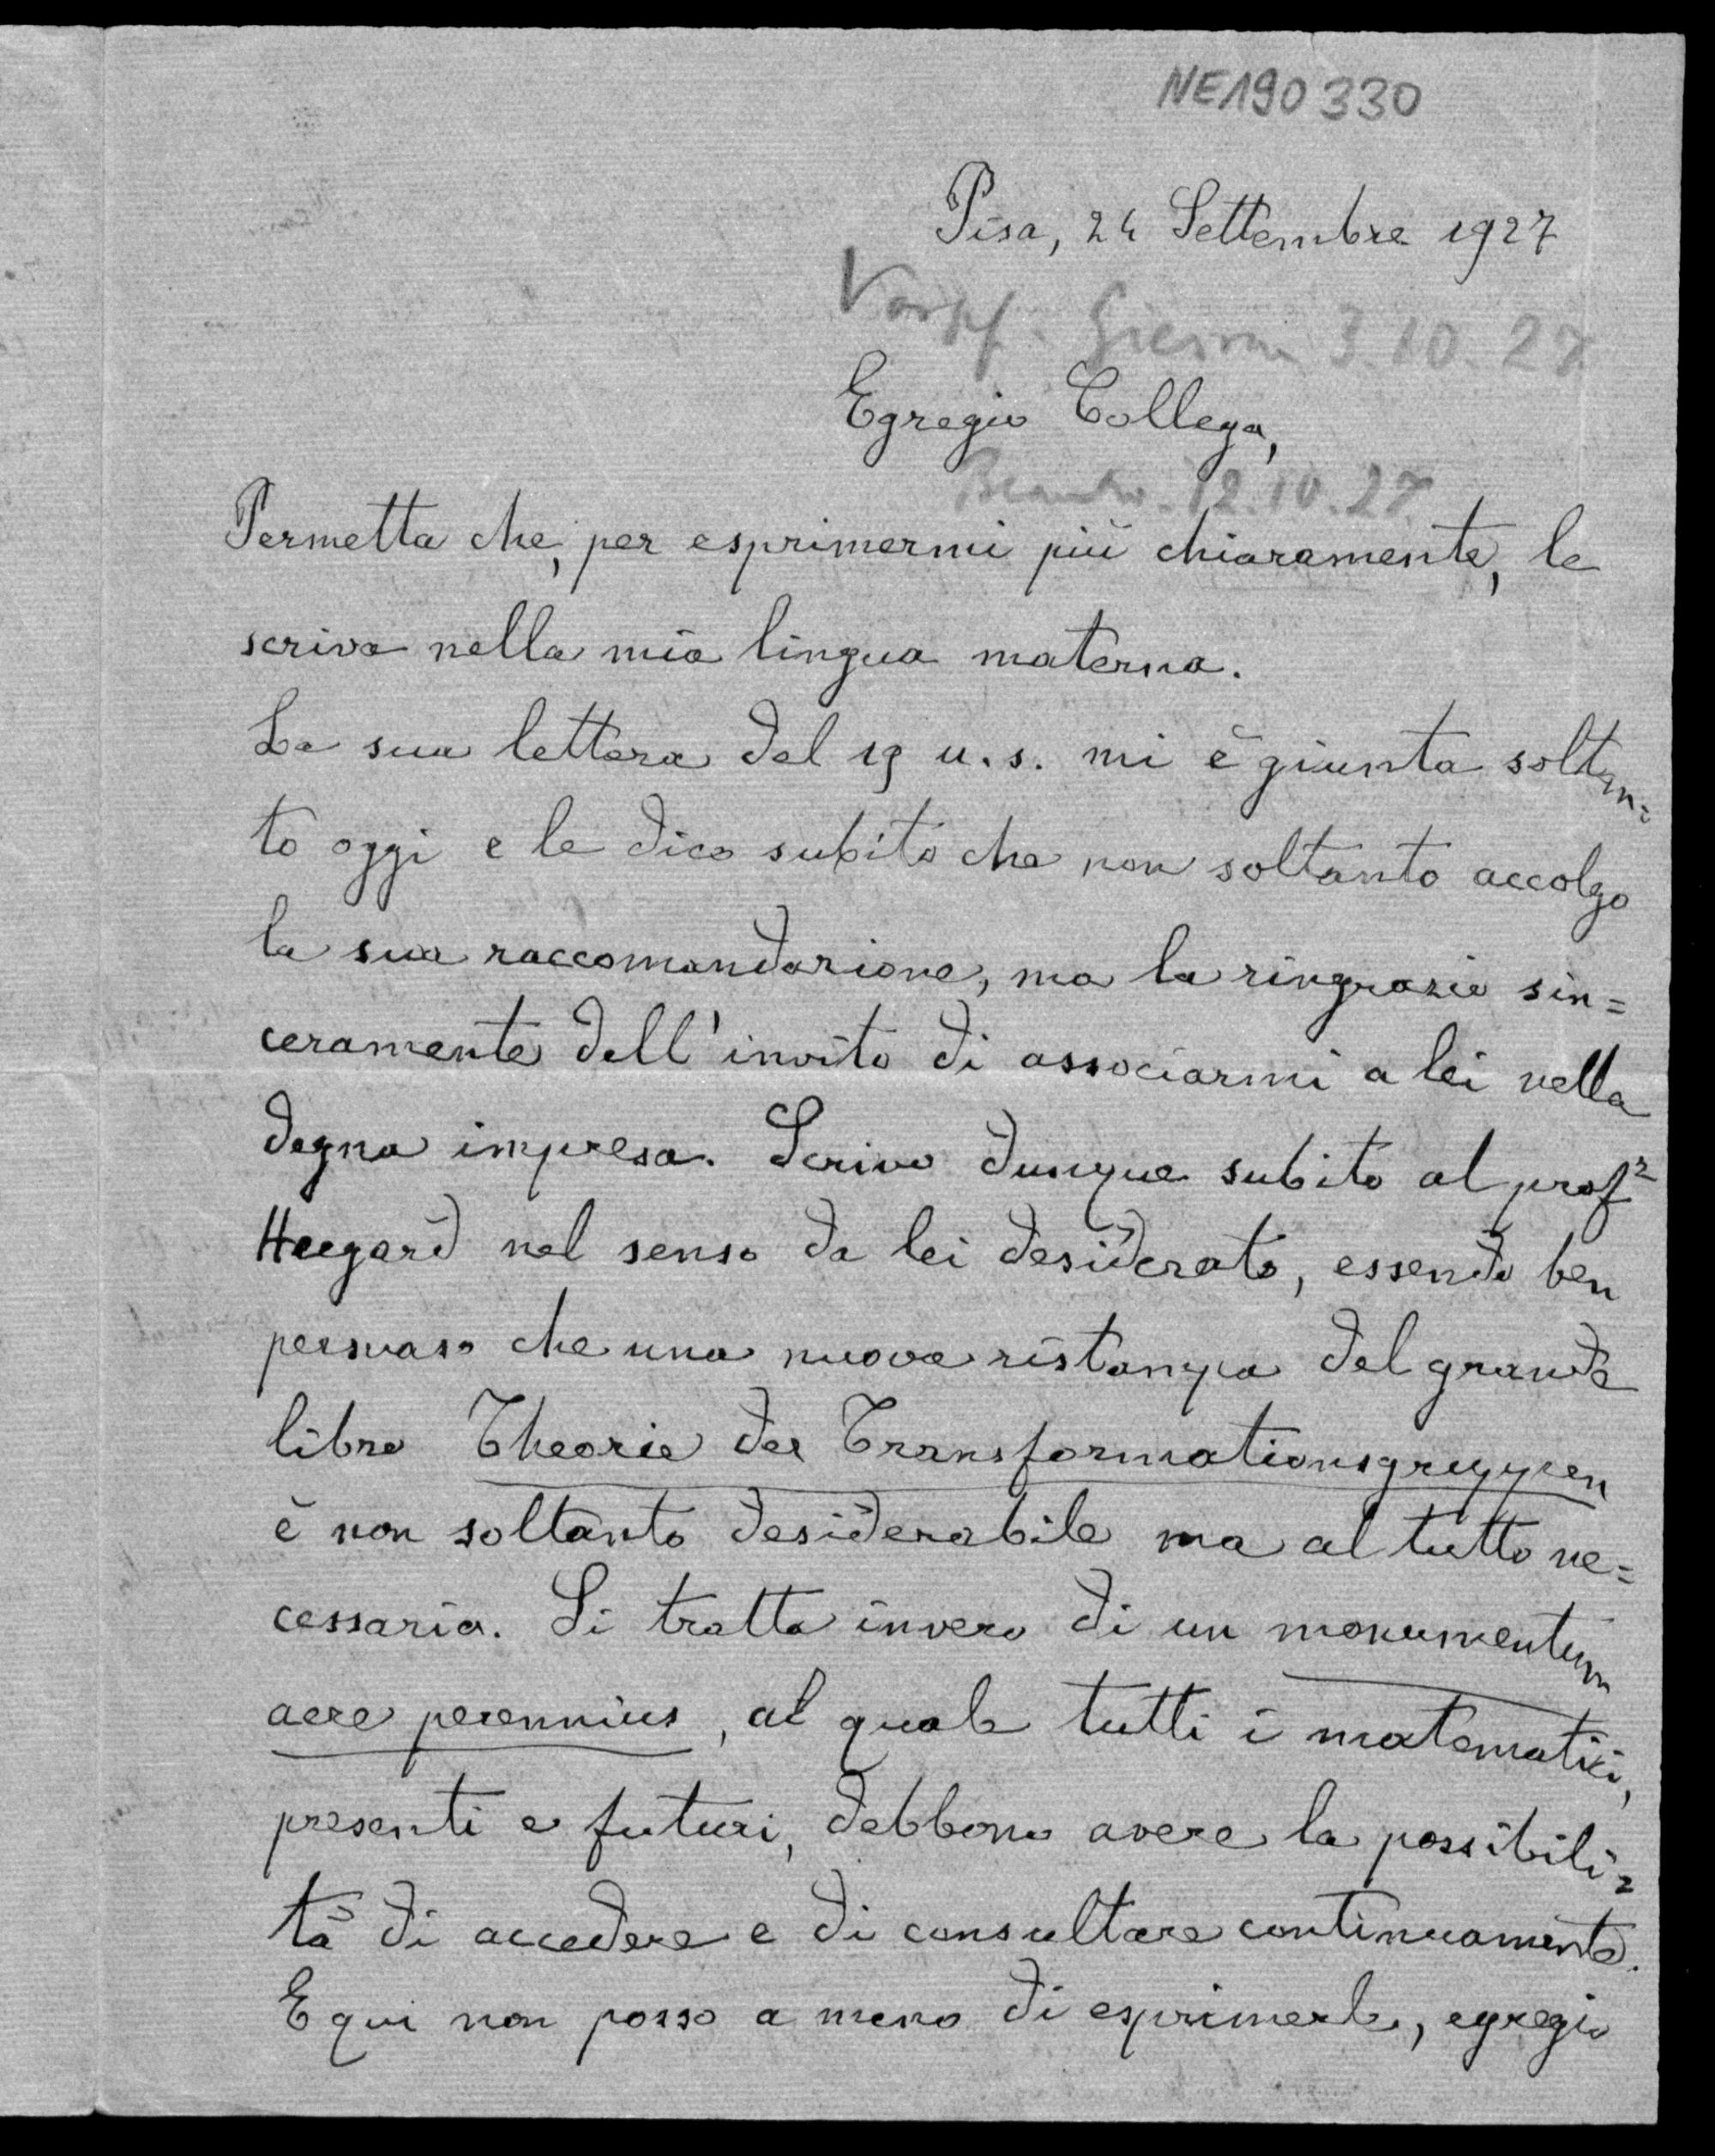 NE190330
Pisa, 24 Settembre 1927
3.10.27
Egregio Collega,
12.10.27
Permetta che, per esprimermi più chiaramente, le
scriva nella mia lingua materna.
La sua lettera del 19 u.s. mi è giunta soltan=
to oggi e le dico subito che non soltanto accolgo
la sua raccomandazione, ma la ringrazio sin=
ceramente dell'invito di associarmi a lei nella
degna impresa. Scrivo dunque subito al profr
Heegard nel senso da lei desiderato, essendo ben
persuaso che una nuova ristampa del grande
libro Theorie der Transformationsgruppen
è non soltanto desiderabile ma al tutto ne=
cessaria. Si tratta invero di un monumentum
aere perennius, al quale tutti i matematici,
presenti e futuri, debbono avere la possibili=
tà di accedere e di consultare continuamente.
E qui non posso a meno di esprimerle, egregio